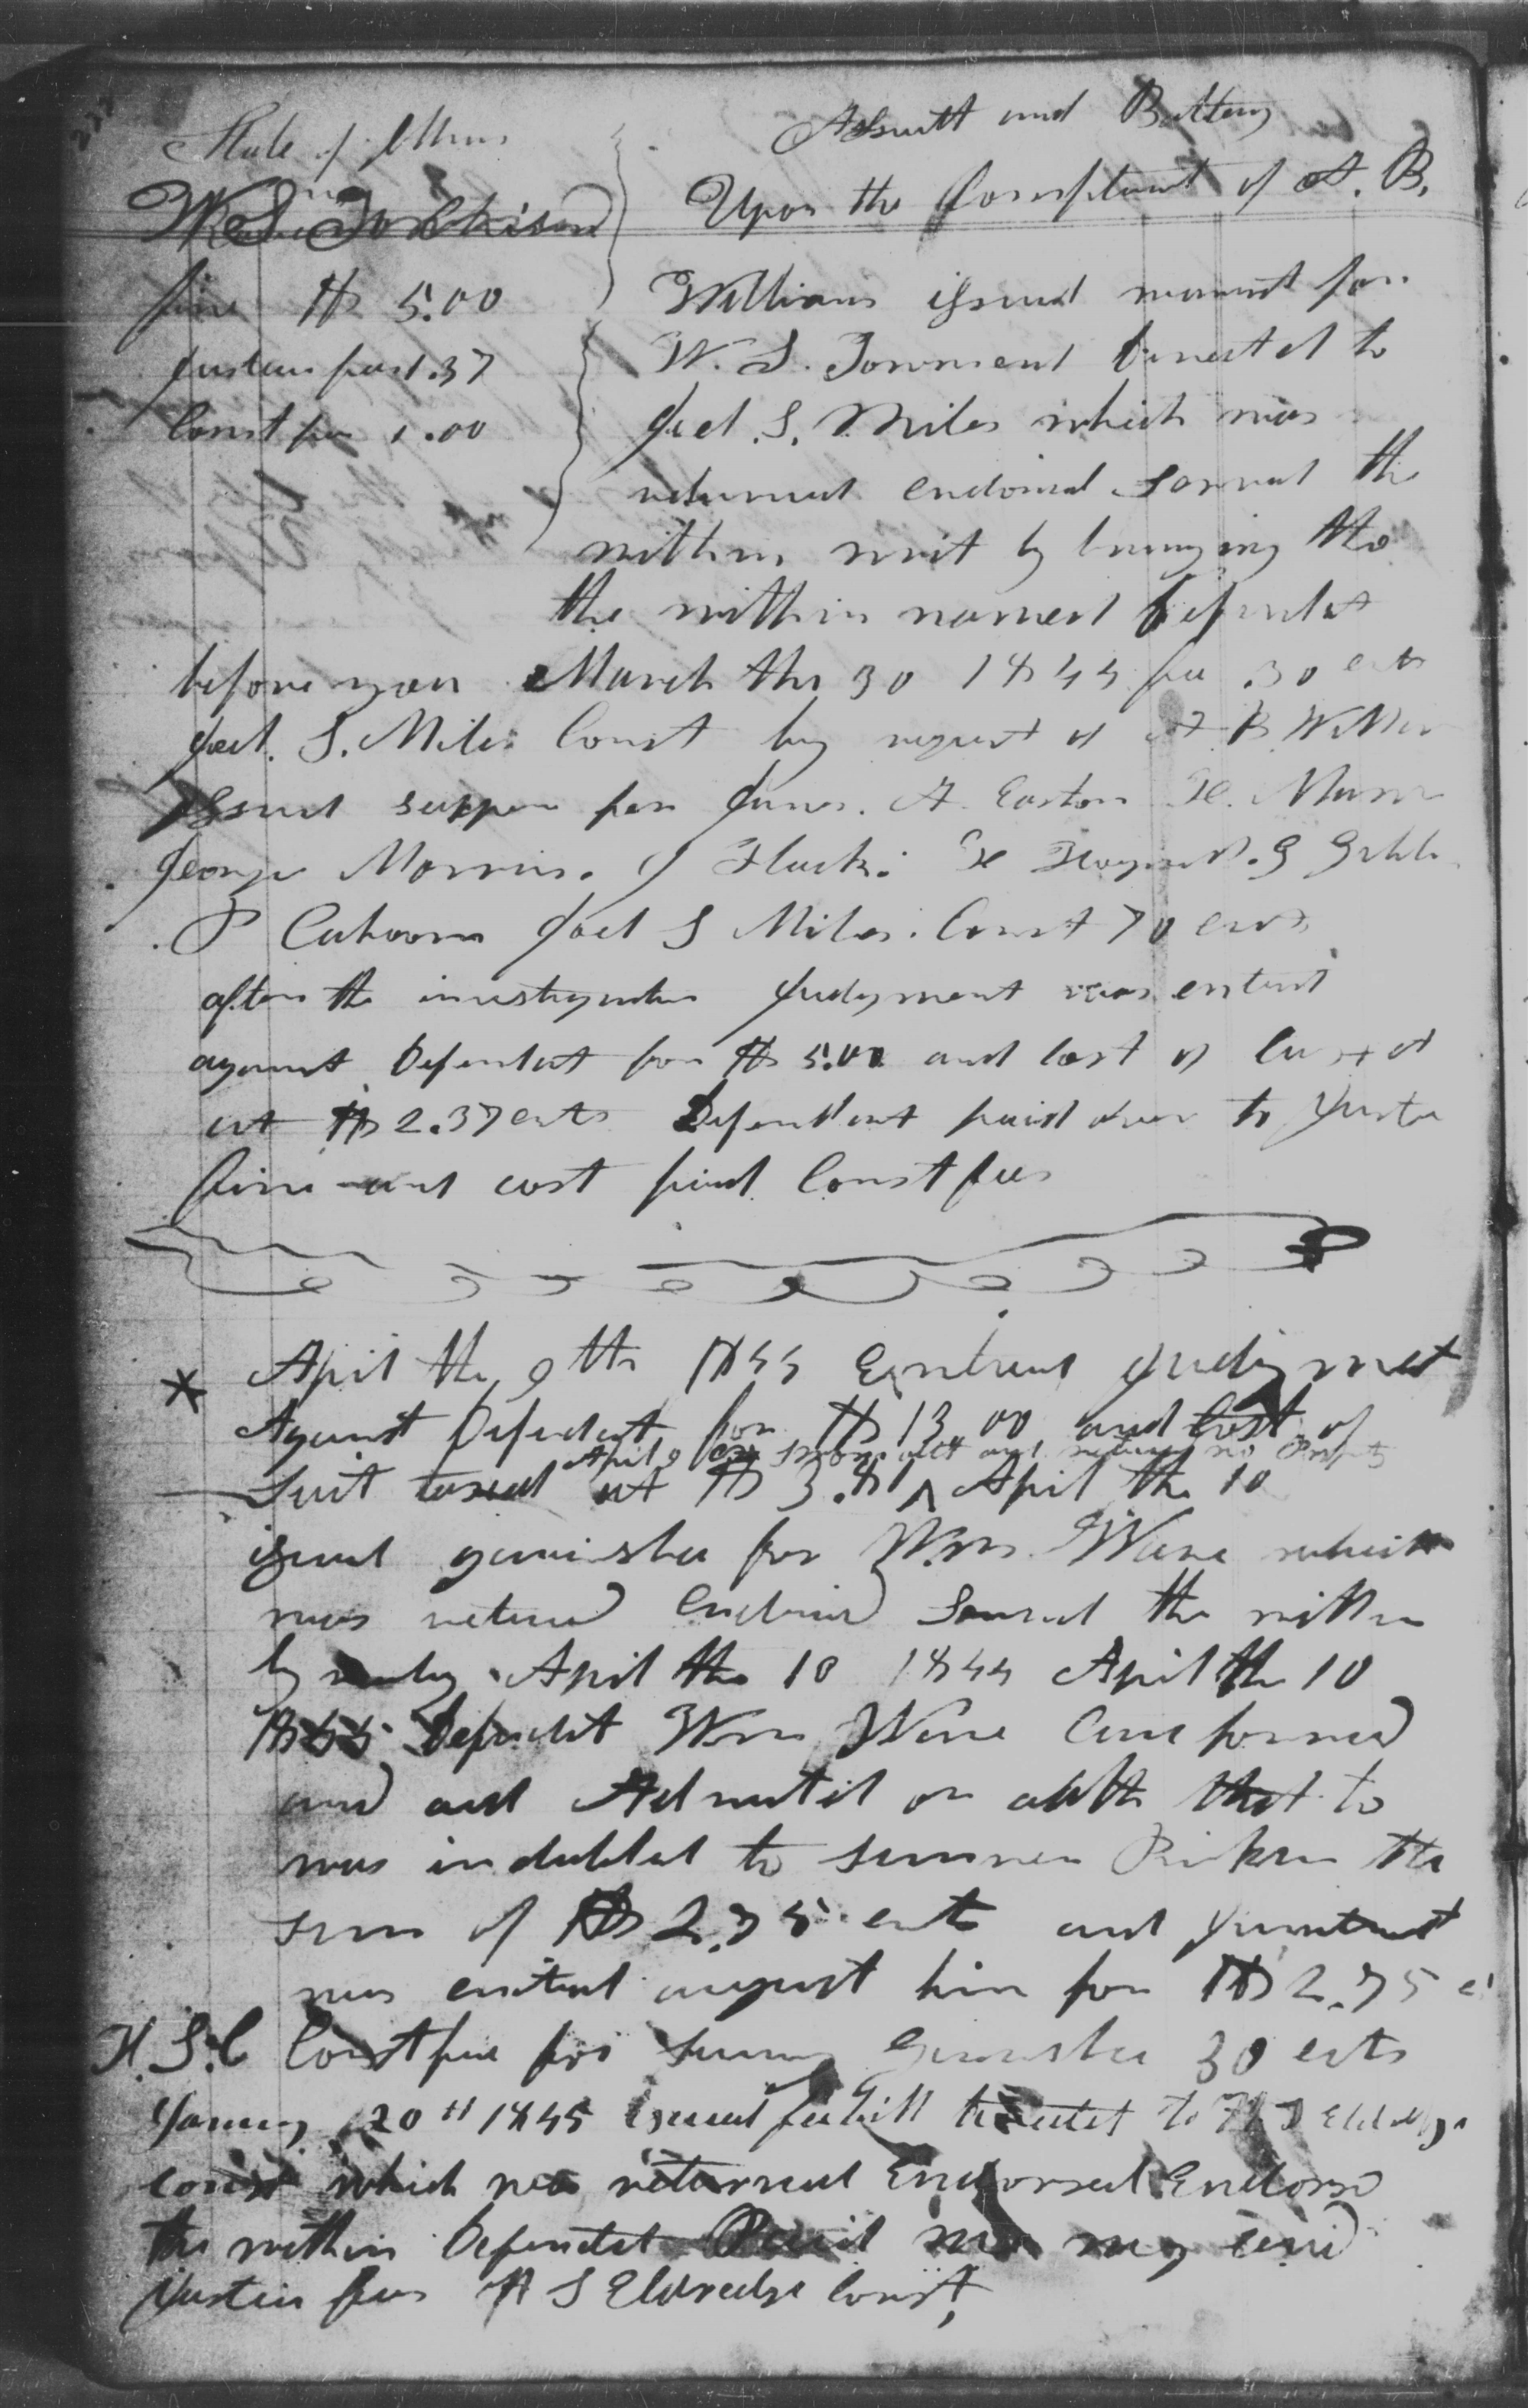 State of Illinois
Assault and Battery
vs
Upon the Complaint of A. B.
fine $ 5.00
Williams issued warrant for
Justices fees 1.37
W. S. Townsend directed to
Const fee 1.00
Joel S. Miles which was
returned endorsed served the
within writ by bringing the
the within named Defendat
before you March the 30 1844 fee .30 cts
Joel S. Miles Const by request of A B Willia
Issued suppen for James A. Easton H. Mann
George Morris. J Fluck. H
P Cahoom Joel S Miles. Const 70 cents
after the investigation Judgment was enterd
against Defendat for $ 5.00 and cost of
at $ 2.37 cents Defendant paid over to Justice
fine and cost paid Const fees
* April the 9th 1844 Entered Judgmet
Against Defendat for $ 13.00 and Cost of
April 9 sworn oath and return no
Suit taxed at $ 3.81 ^ April the 10
issued garnishee for Wm. Ware which
was returd Endorsd Served the within
by April the 10 1844 April the 10
1844 Defendat Wm Ware Came forward
and and Admitted on oath that to
was indebted to the
sum of $ 2.75 cents and
was entered against him for $ 2.75
H. S. C Const fee for Garnishee 30 cts
January 20th 1845 Issued feebill directed to H S Eldredge
const which was returned Endorsed Endorsd
the within Defendat Paid me my
Justice fees H S Eldredge Const,